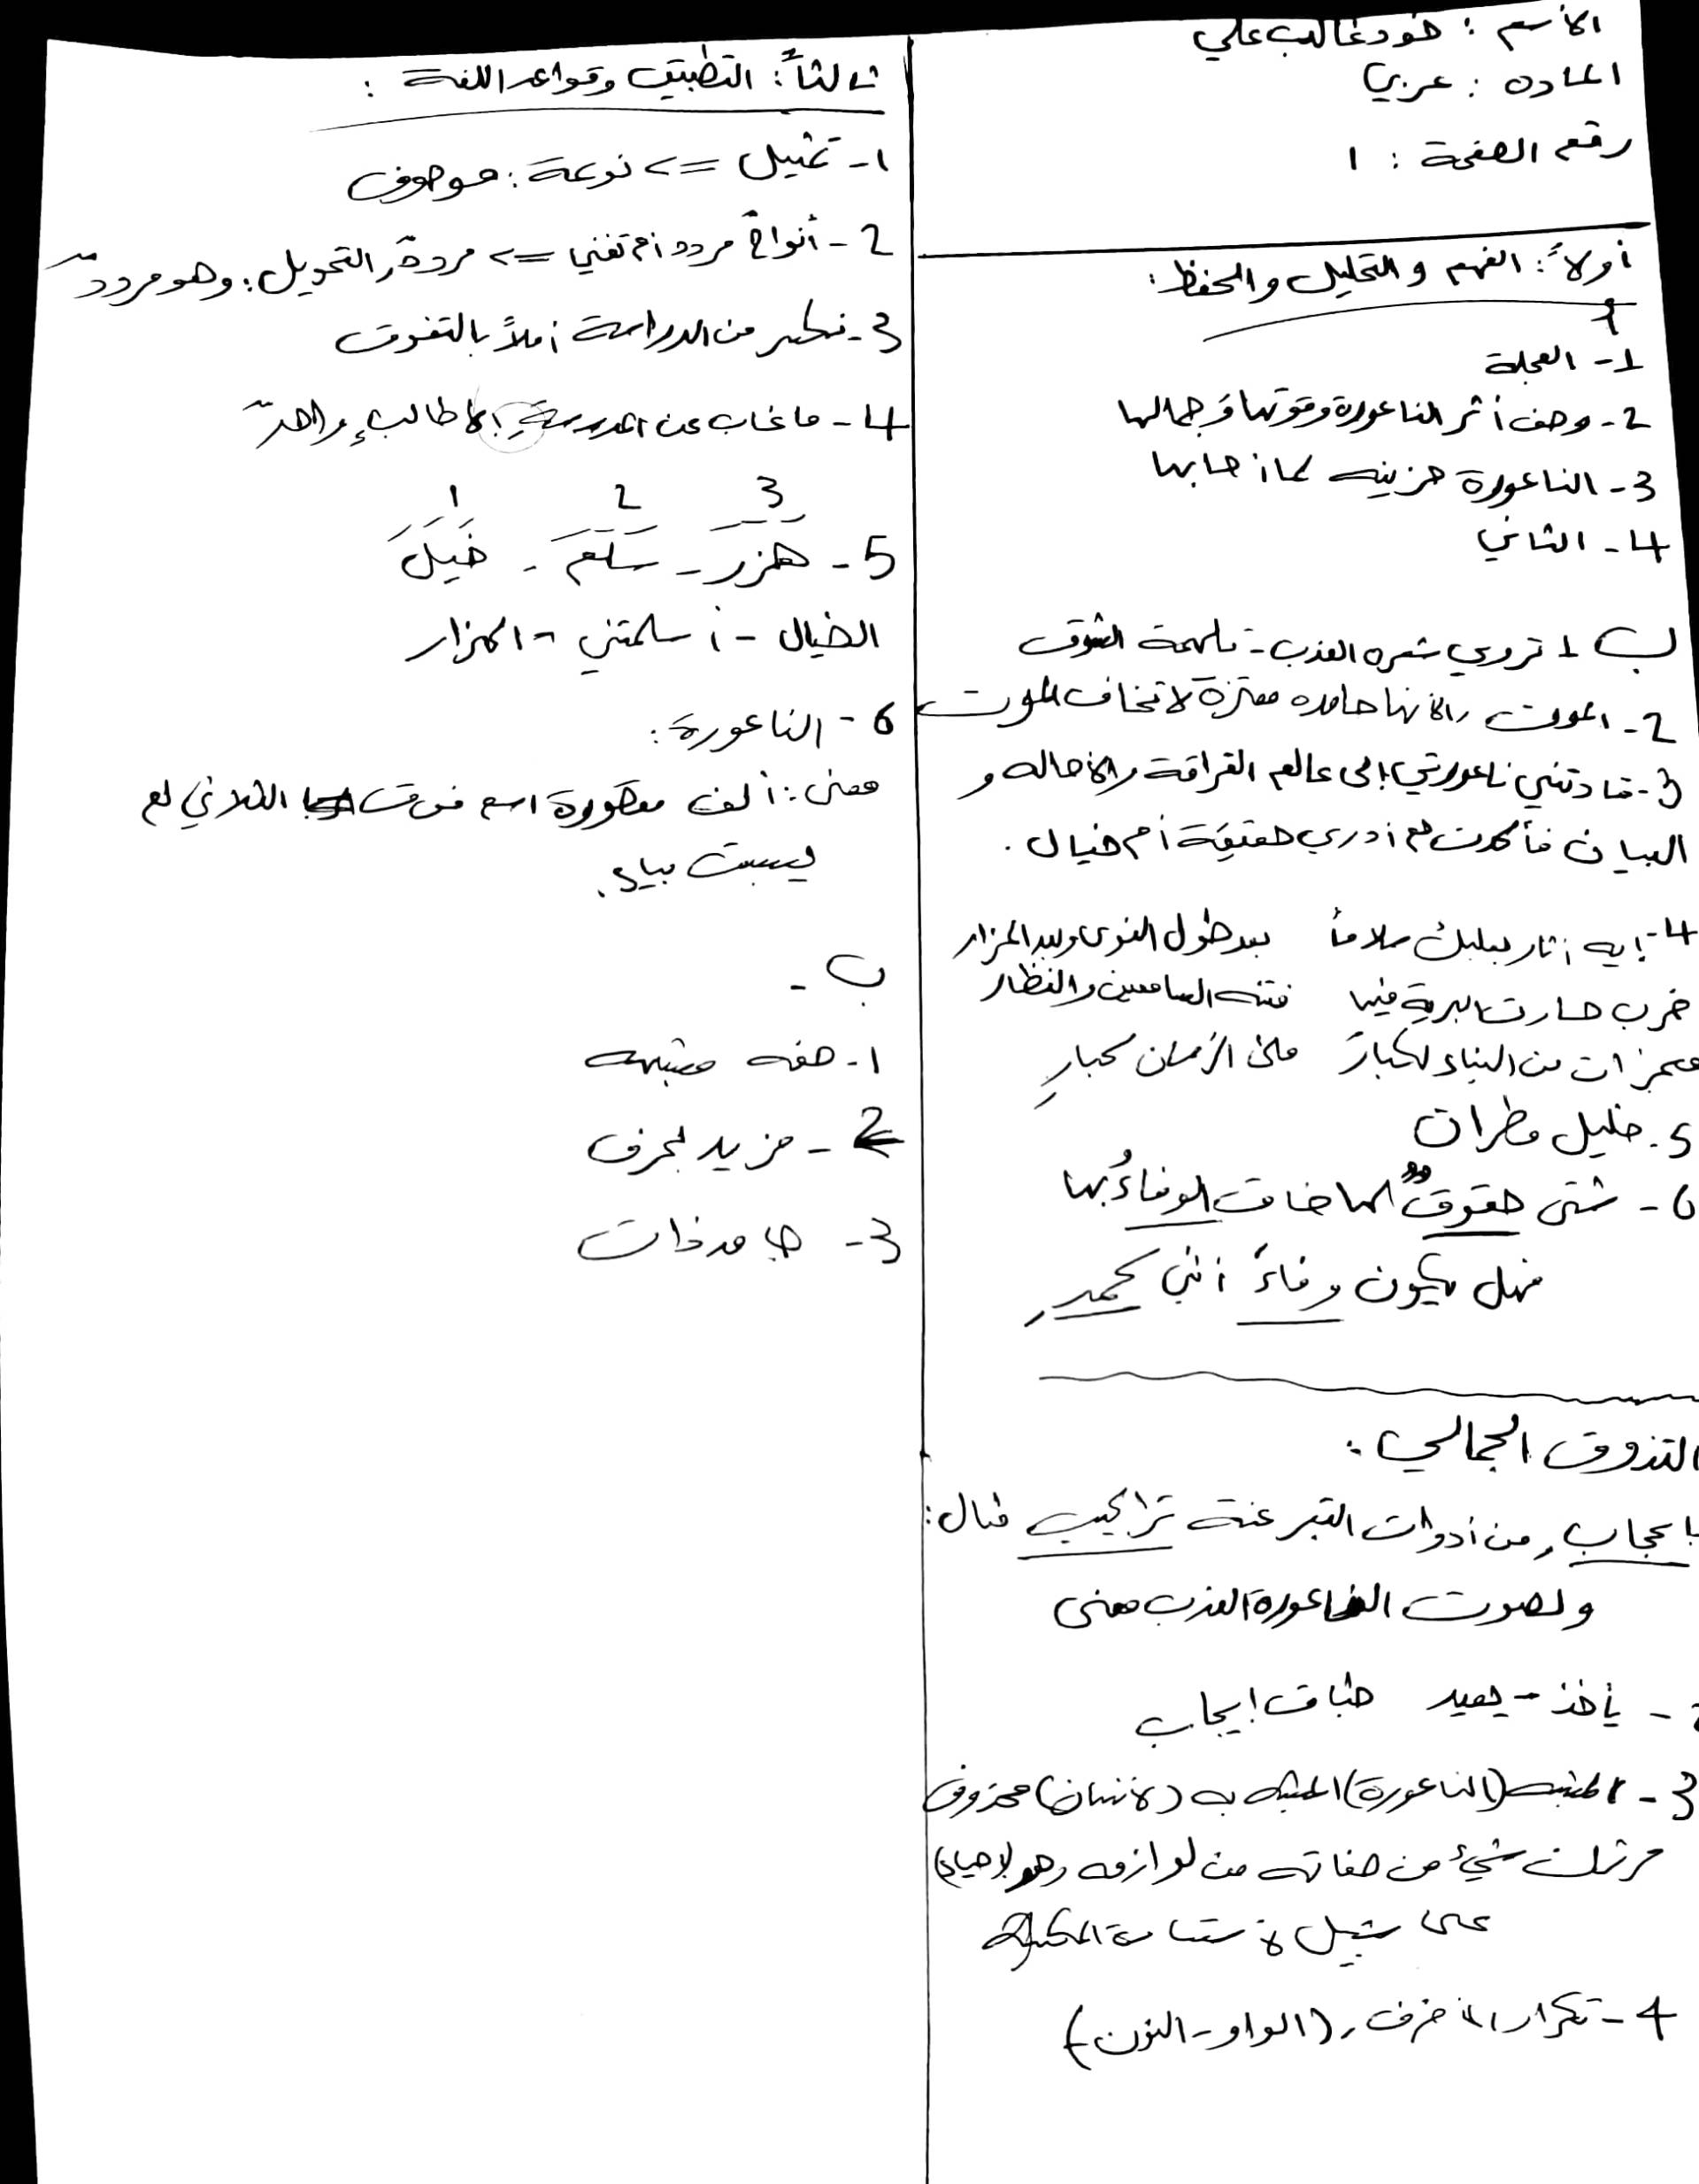 الأسم : خود غالب علي
المادة : عربي
رقم الصفحة : ١
أولاً : الفهم والتحليل والحفظ :
أ
1- العجلة
2- وصف أثر الناعورة وقوتها وجمالها
3- الناعورة حزينه لما أصابها
4- الثاني
ب 1 تروي شعره العذب - ملهمة الشوق
2- الموت لأنها صامده معتزة لا تخاف الموت
3- قادتني ناعورتي إلى عالم العراقة والأصاله و
البيان فأكدت لم أدري حقيقة أم خيال .
4- إيه آثار بعلبك سلاماً بعد طول النوى وبعد المزار
خرب حارت البرية فيها فتنه السامعين والنظار
معجزات من البناء لكبار ملئ الزمان كبارِ
5- خليل مطران
6- شتى حقوقٌ لها ضاق الوفاءُ بها
فهل يكون وفاءً أنني كمدِ
التذوق الجمالي :
بإعجاب , من أدوات التعبر عنة تراكيب مثال :
ولصوت الناعورة العذب معنى
- يأخذ - يعيد طباق إيجاب
3- المشبه (الناعورة) المشبه به (لأنسان) محذوف
ترك شيء من صفاته من لوازمه وهو (لاحياء)
على سبيل لأستعارة المكنية
4- تكرار الأحرف , (الواو - النون)
ثالثاً : التطبيق وقواعد اللغة :
١- تمثيل => نوعة : موصوف
2- أنواحٌ مردد أم تغني => مردد قر التحويل : وهو مرددٌ
3- نكثر من الدراسة أملاً بالتفوق
4- ما غاب عن المدرسةِ إلا طالبٌ واحدٌ
3 2 1
5- هزر - سَلَمَ - خَيَلَ
الخيال - أسلمتني - الهزار
6- الناعورة :
معنى : ألف مقصورة اسم فوق الثلاثي لم
يسبق بياء .
ب -
١- صفه مشبهه
2- مزيد بحرف
3- جامد ذات